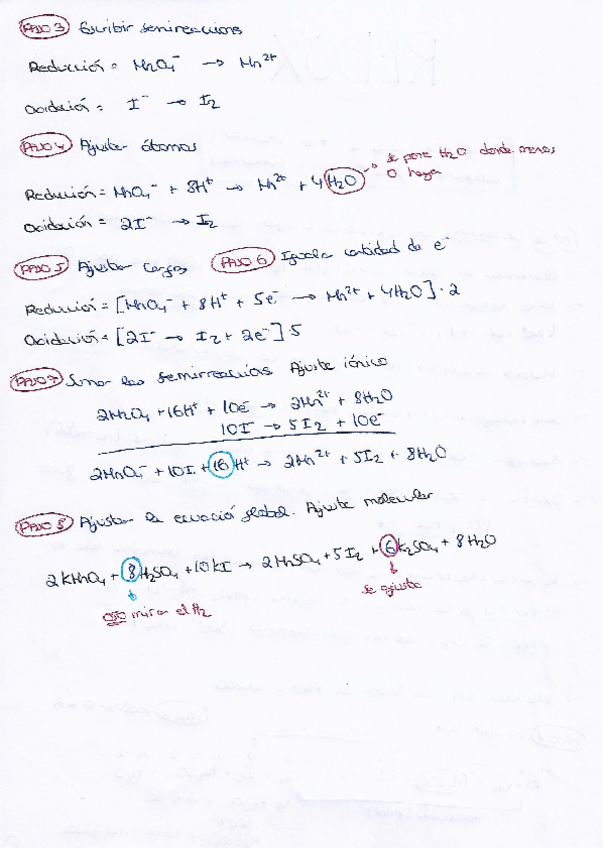 PASO 3 Escribir semireacciones
Reducción = MnO₄⁻ → Mn²⁺
Oxidación = I⁻ → I₂
PASO 4 Ajustar átomos
se pone H₂O donde menos
O haya
Reducción = MnO₄⁻ + 8H⁺ → Mn²⁺ + 4H₂O
Oxidación = 2I⁻ → I₂
PASO 5 Ajustar cargas PASO 6 Iguala cantidad de e⁻
Reducción = [MnO₄⁻ + 8H⁺ + 5e⁻ → Mn²⁺ + 4H₂O] · 2
Oxidación = [2I⁻ → I₂ + 2e⁻] · 5
PASO 7 Sumar las semirreaccións Ajuste iónico
2MnO₄ + 16H⁺ + 10e⁻ → 2Mn²⁺ + 8H₂O
10I⁻ → 5I₂ + 10e⁻
2MnO₄⁻ + 10I + 16H⁺ → 2Mn²⁺ + 5I₂ + 8H₂O
PASO 8 Ajustar la ecuación global. Ajuste molecular
2KMnO₄ + 8H₂SO₄ + 10KI → 2MnSO₄ + 5I₂ + 6K₂SO₄ + 8H₂O
se ajusta
OJO mirar el H₂